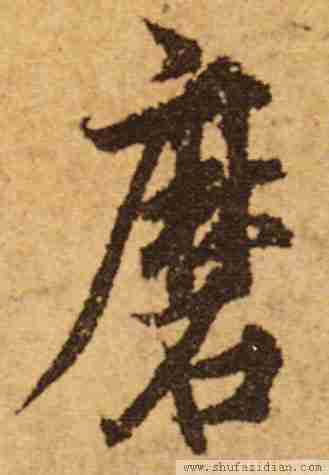 磨
www.shufazidian.com